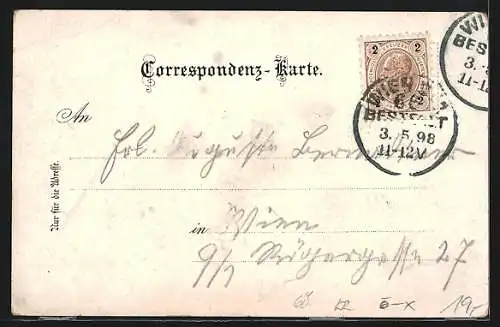 2 2
WIEN
BESTELLT
3. 5. 98
11-12V
WI
BES
3.
11-12
Correspondenz-Karte.
An
Frl. Augustine
in Wien
9/1 27
Nur für die Adresse.
6-x 19,-